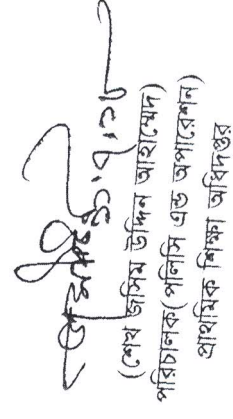 (শেখ জসিম উদ্দিন আহাম্মেদ)
পরিচালক(পলিসি এন্ড অপারেশন)
প্রাথমিক শিক্ষা অধিদপ্তর